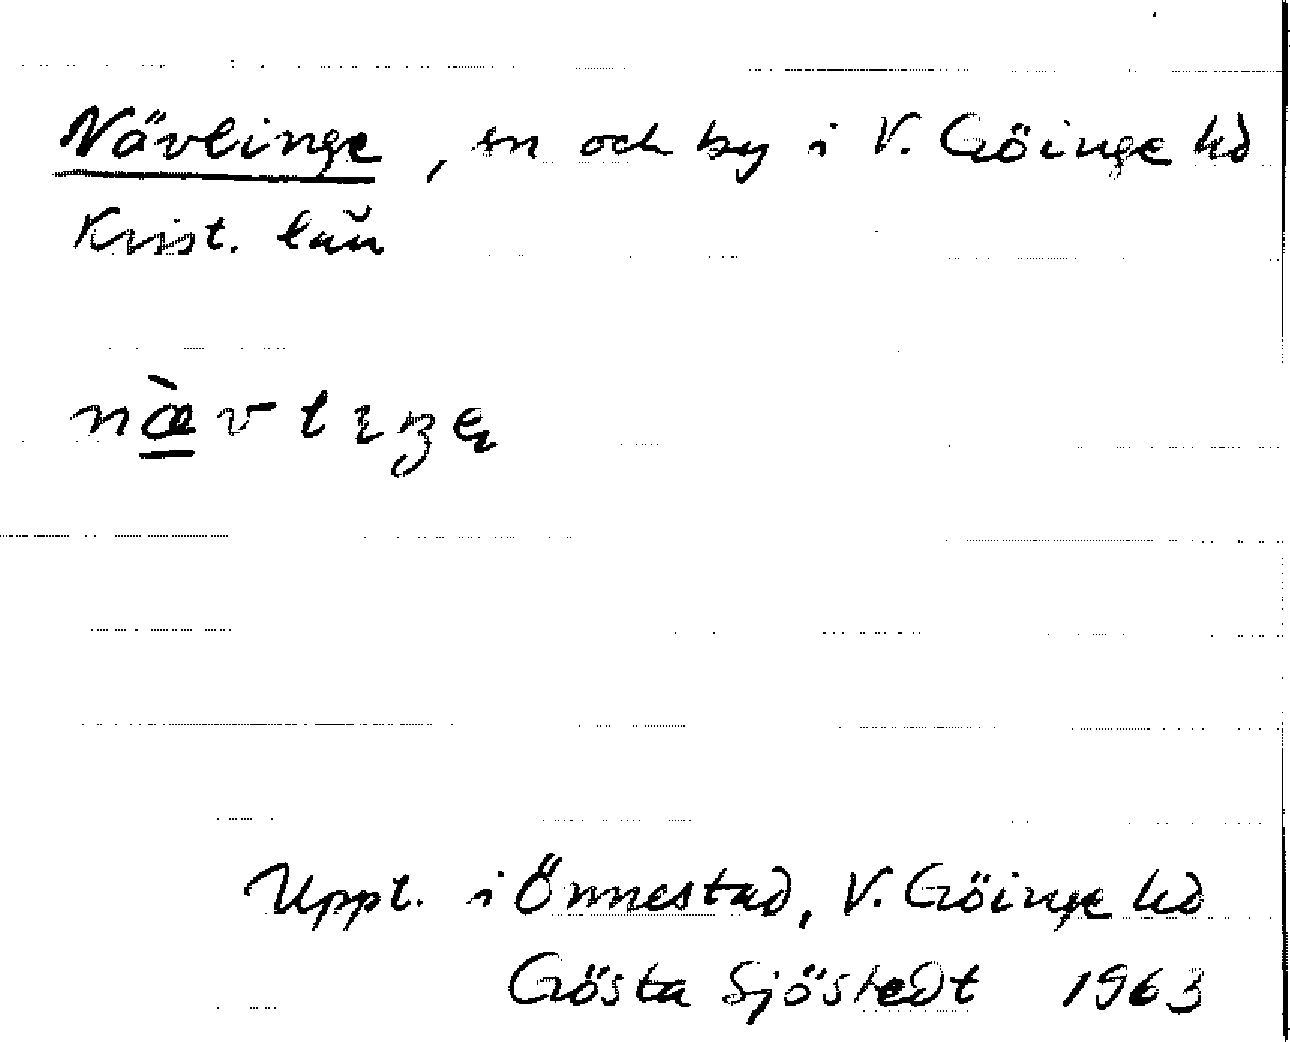 Nävlinge, sn och by i V. Göinge hd
Krist. län
Uppt. i Önnestad, V. Göinge hd
Gösta Sjöstedt 1963